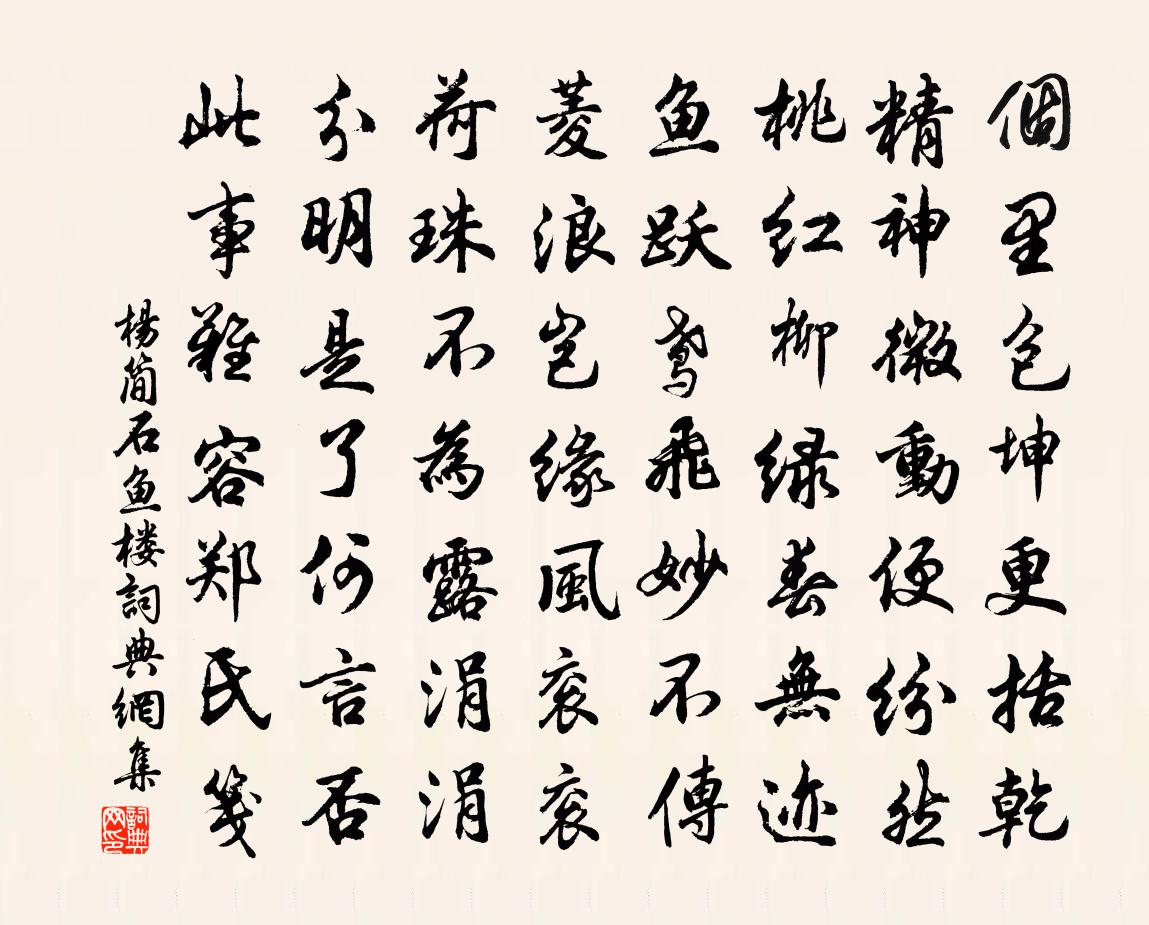 個里包坤更括乾
精神微動便紛然
桃红柳绿春無迹
鱼跃鸢飛妙不傳
菱浪岂缘風衮衮
荷珠不為露涓涓
分明是了何言否
此事難容郑氏笺
楊简石鱼楼詞典網集
詞典网印